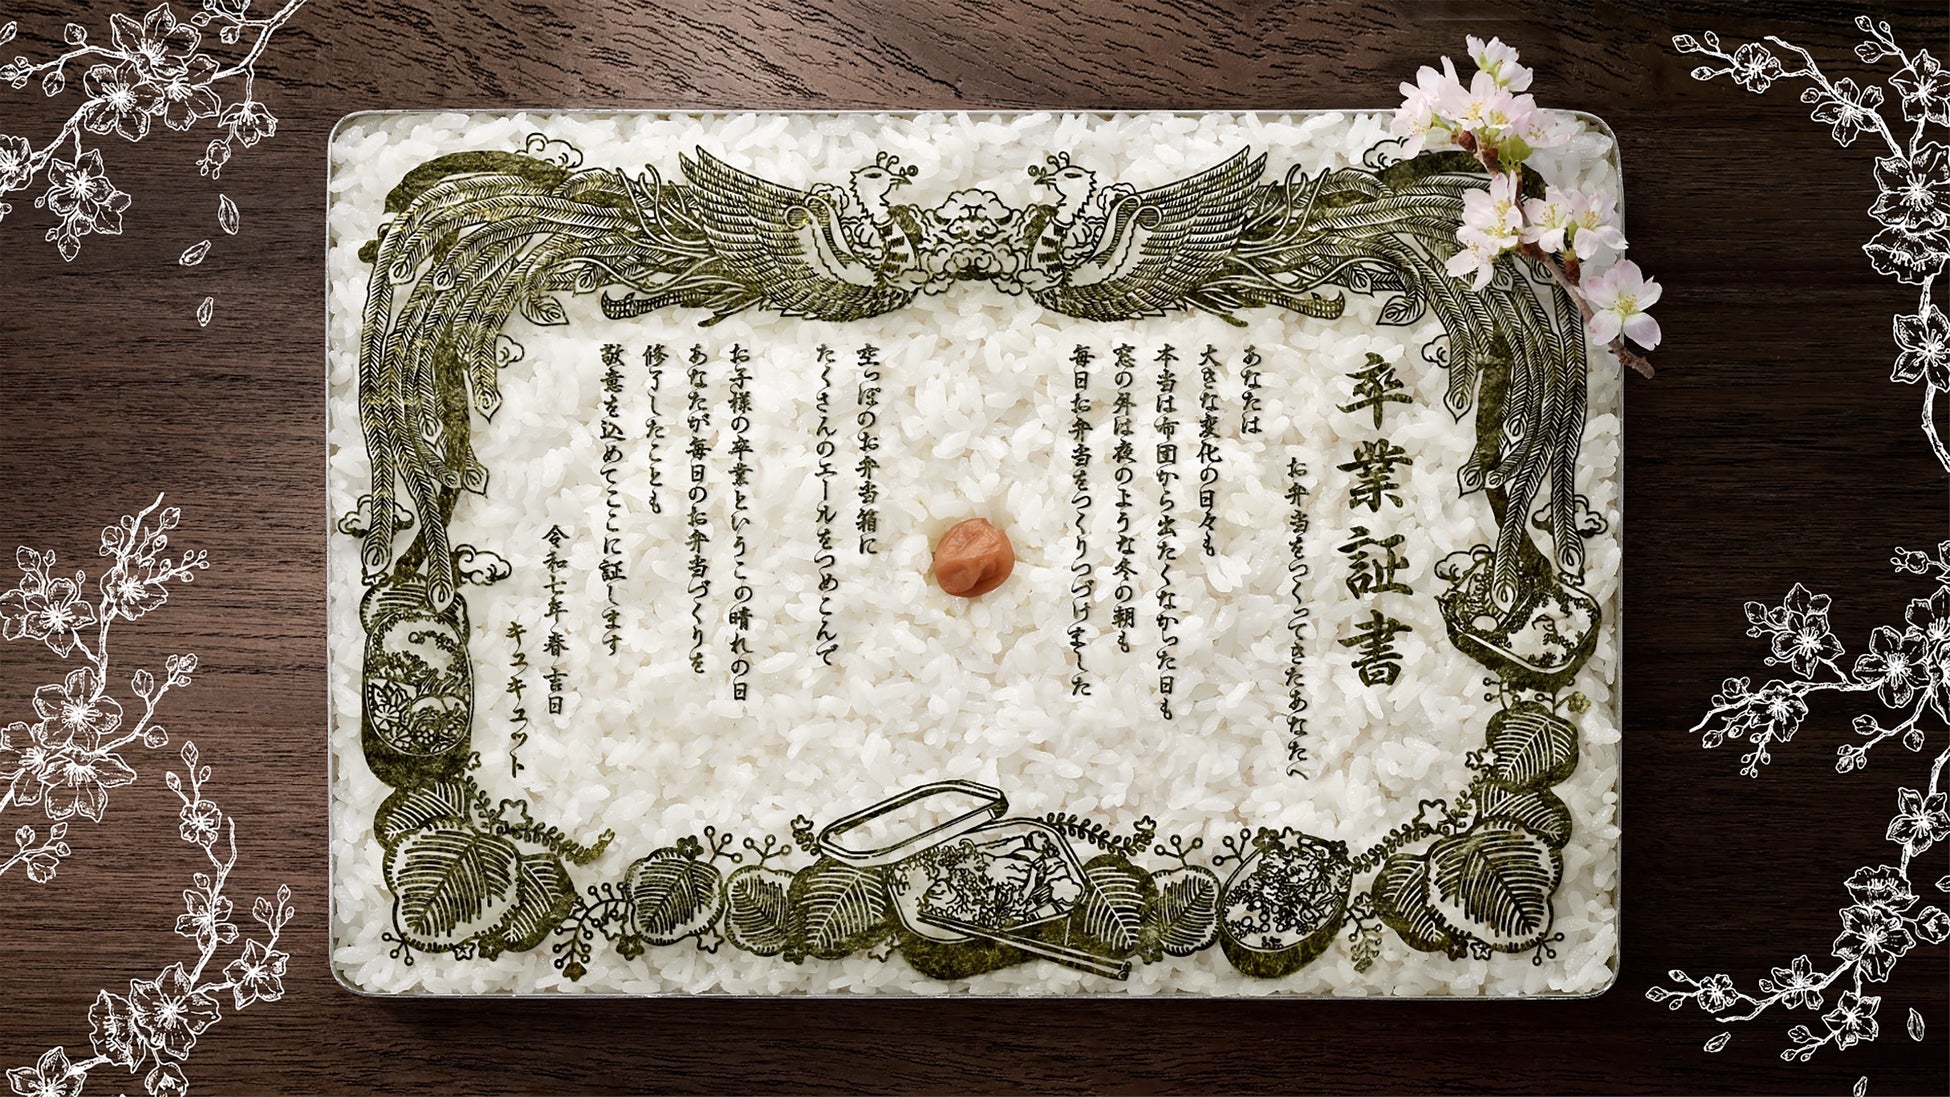 卒業証書
お弁当をつくってきたあなたへ
あなたは
大きな変化の日々も
本当は布団から出たくなかった日も
窓の外は夜のような冬の朝も
毎日お弁当をつくりつづけました
空っぽのお弁当箱に
たくさんのエールをつめこんで
お子様の卒業というこの晴れの日
あなたが毎日のお弁当づくりを
修了したことも
敬意を込めてここに証します
令和七年春 吉日
キュキュット